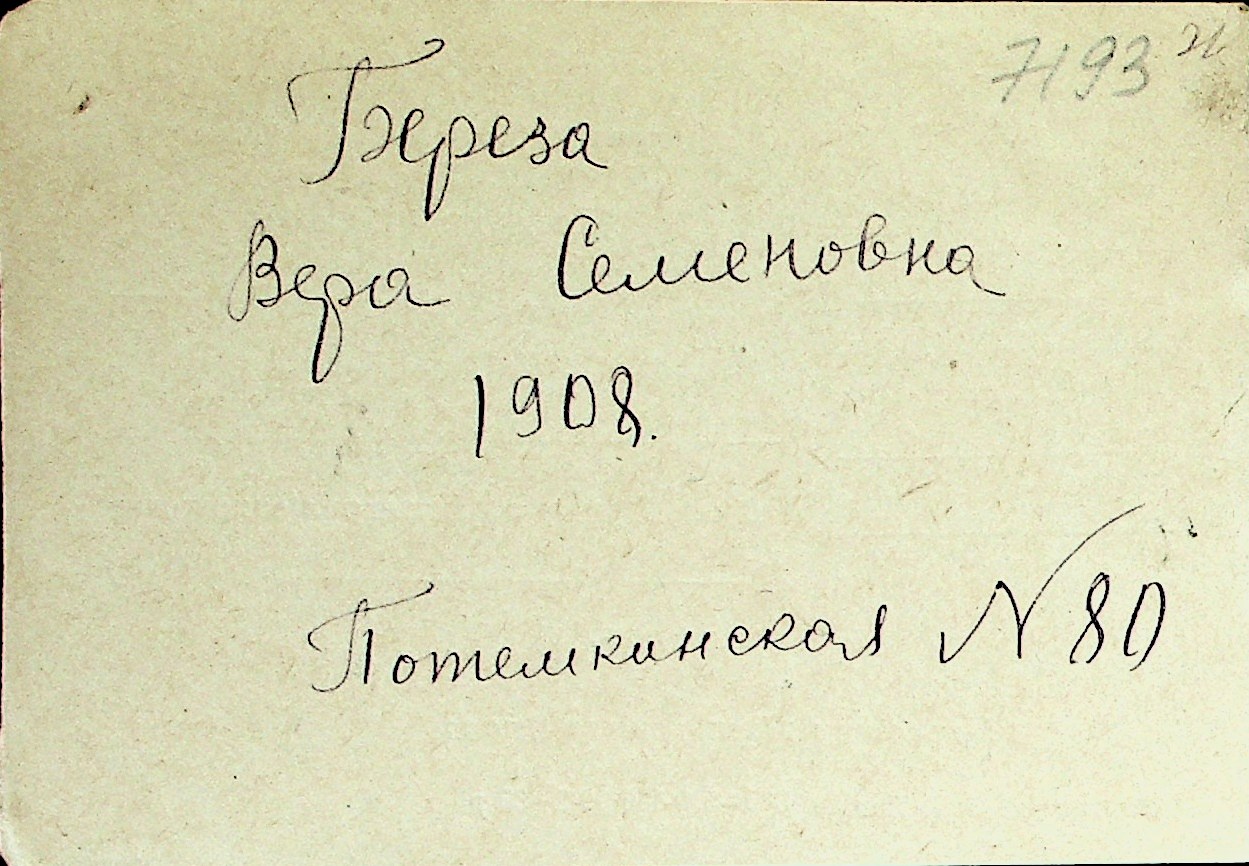 7193
Береза
Вера Семеновна
1908.
Потемкинская N 80